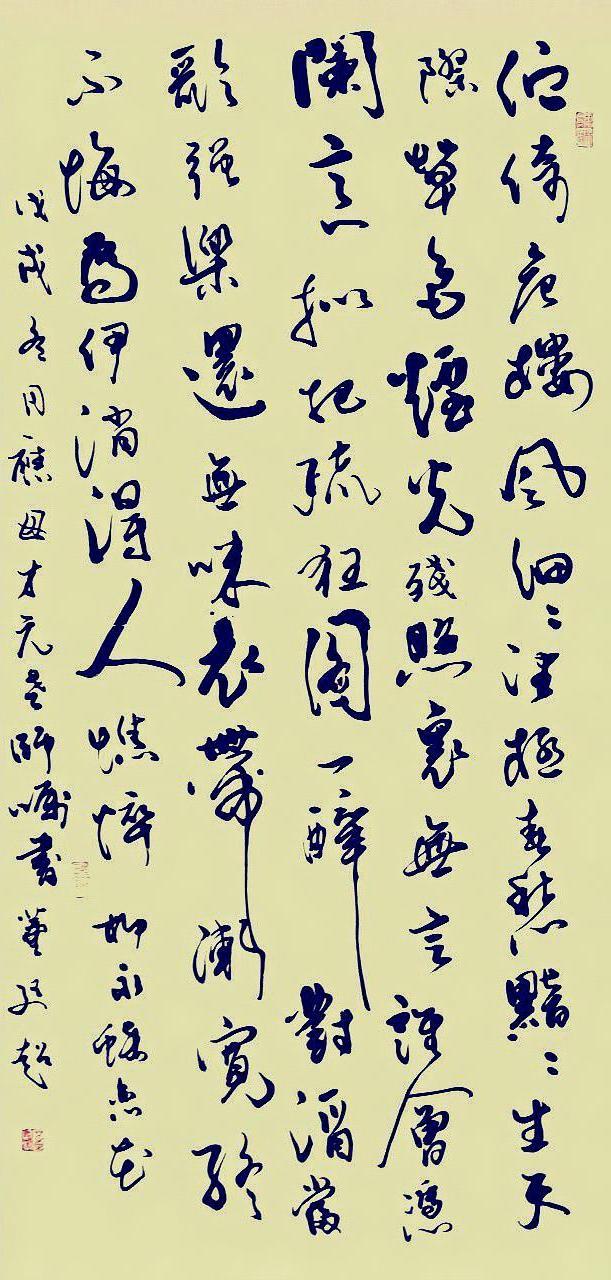 佇倚危樓風細〻望極春愁黯〻生天
際草色煙光殘照裏無言誰會憑
闌意擬把疏狂圖一醉對酒當
歌強樂還無味衣帶漸寬終
不悔為伊消得人憔悴 柳永蝶戀花
戊戌冬月應毋才元老師囑書董超